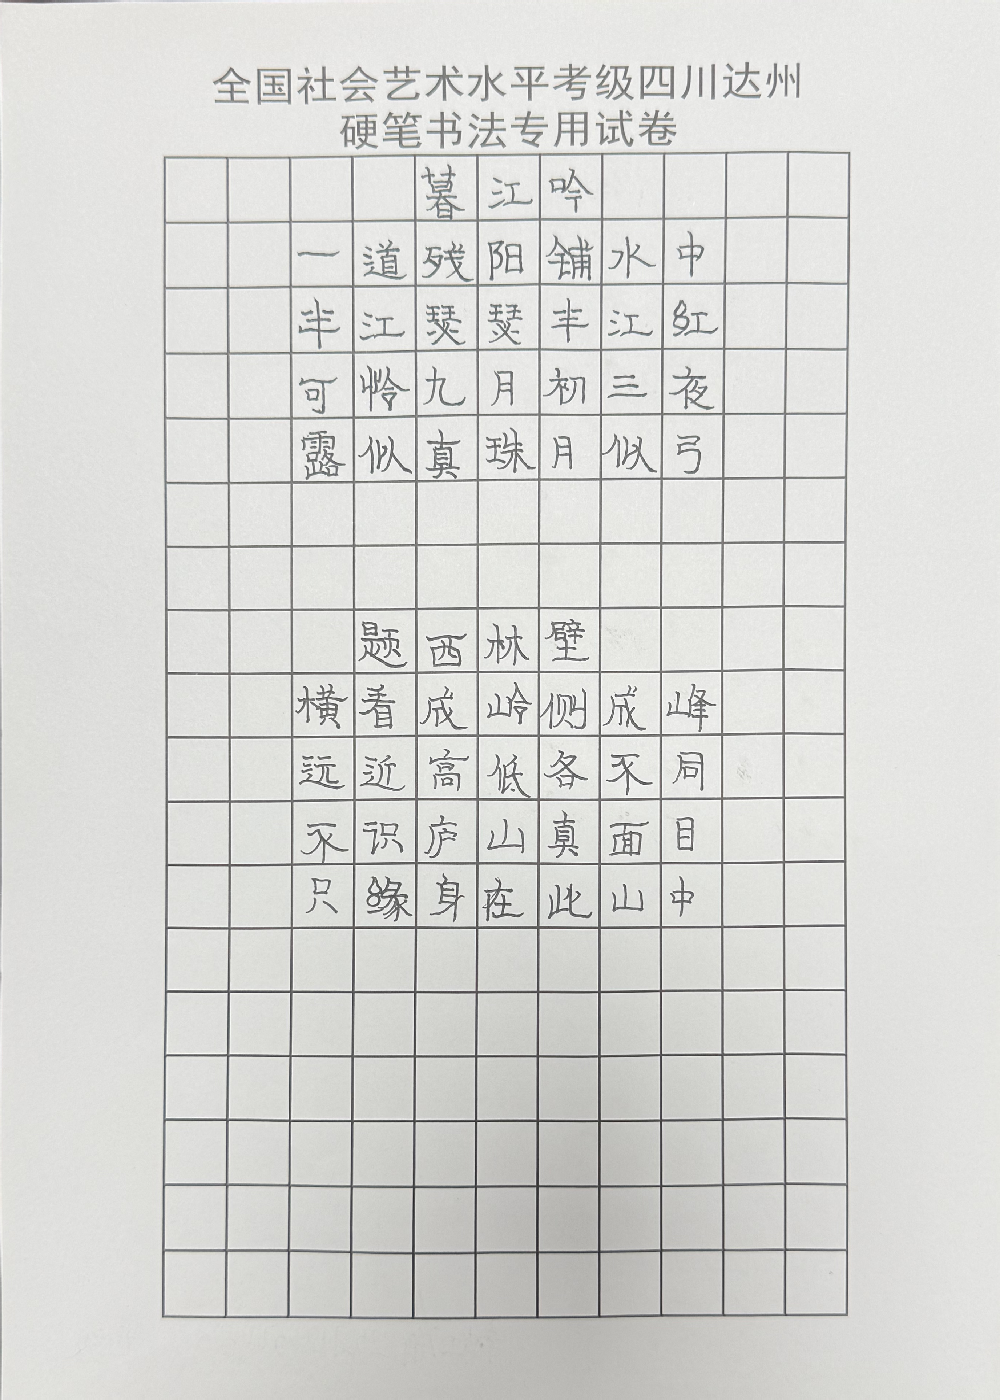 全国社会艺术水平考级四川达州
硬笔书法专用试卷
暮江吟
一道残阳铺水中
半江瑟瑟半江红
可怜九月初三夜
露似真珠月似弓
题西林壁
横看成岭侧成峰
远近高低各不同
不识庐山真面目
只缘身在此山中